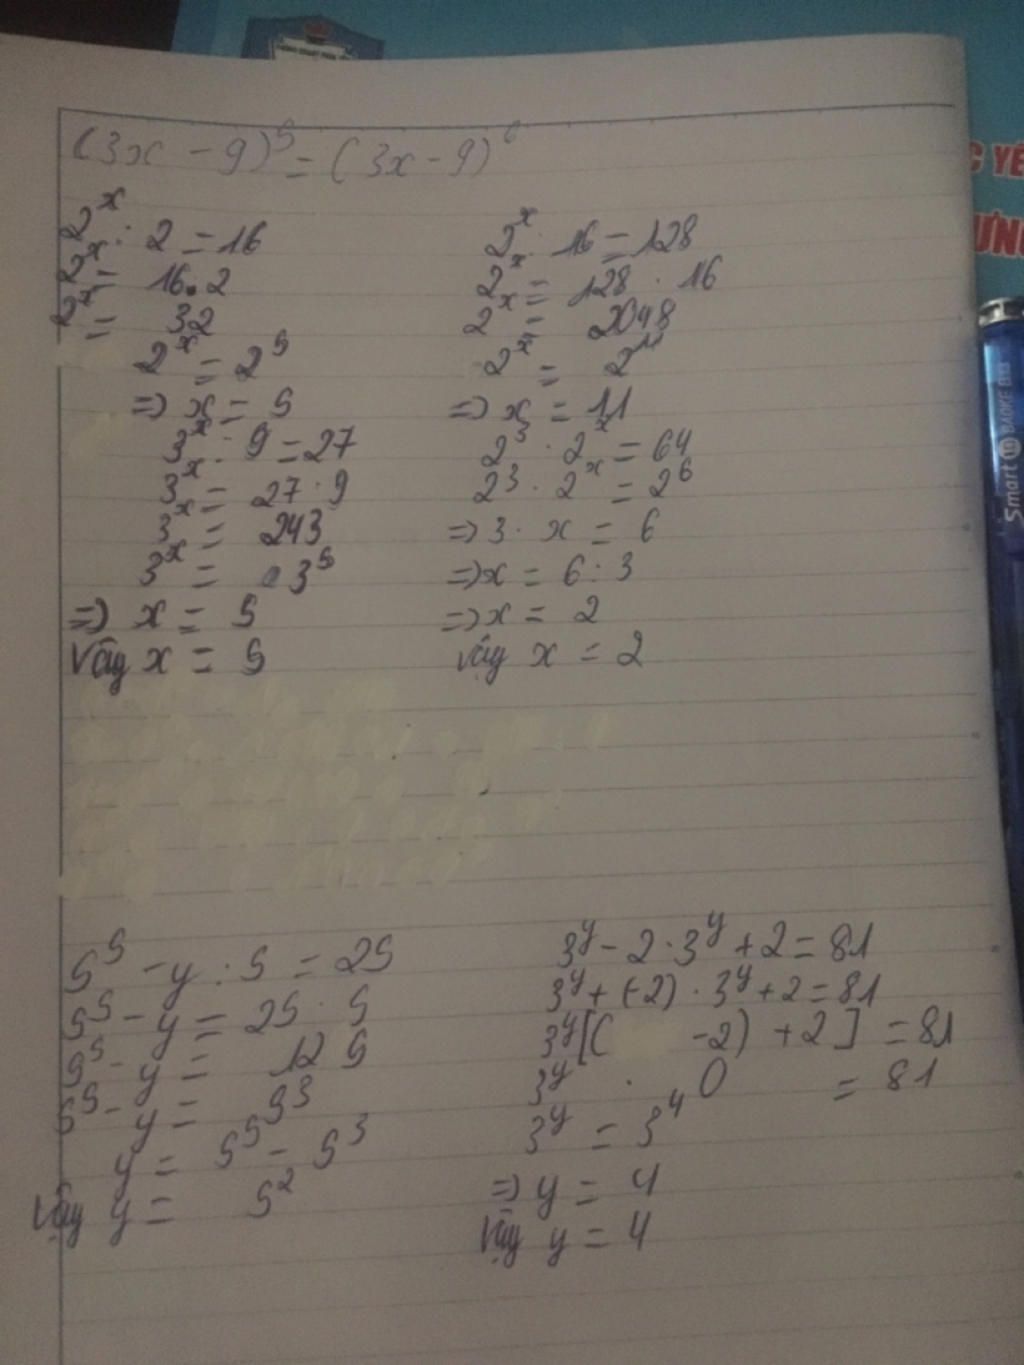 (3x - 9)^5 = (3x - 9)^6
2^x : 2 = 16
2^x = 16.2
2^x = 32
2^x = 2^5
=> x = 5
3^x : 9 = 27
3^x = 27 . 9
3^x = 243
3^x = 3^5
=> x = 5
Vậy x = 5
2^x : 16 = 128
2^x = 128 . 16
2^x = 2048
2^x = 2^11
=> x = 11
2^3 . 2^x = 64
2^3 . 2^x = 2^6
=> 3 . x = 6
=> x = 6 : 3
=> x = 2
vậy x = 2
5^5 - y : 5 = 25
5^5 - y = 25 . 5
5^5 - y = 125
5^5 - y = 5^3
y = 5^5 - 5^3
Vậy y = 5^2
3^y - 2 . 3^y + 2 = 81
3^y + (-2) . 3^y + 2 = 81
3^y [( -2) + 2] = 81
3^y . 0 = 81
3^y = 3^4
=> y = 4
Vậy y = 4
C YẾ
ƯNG
Smart BAOKE B53